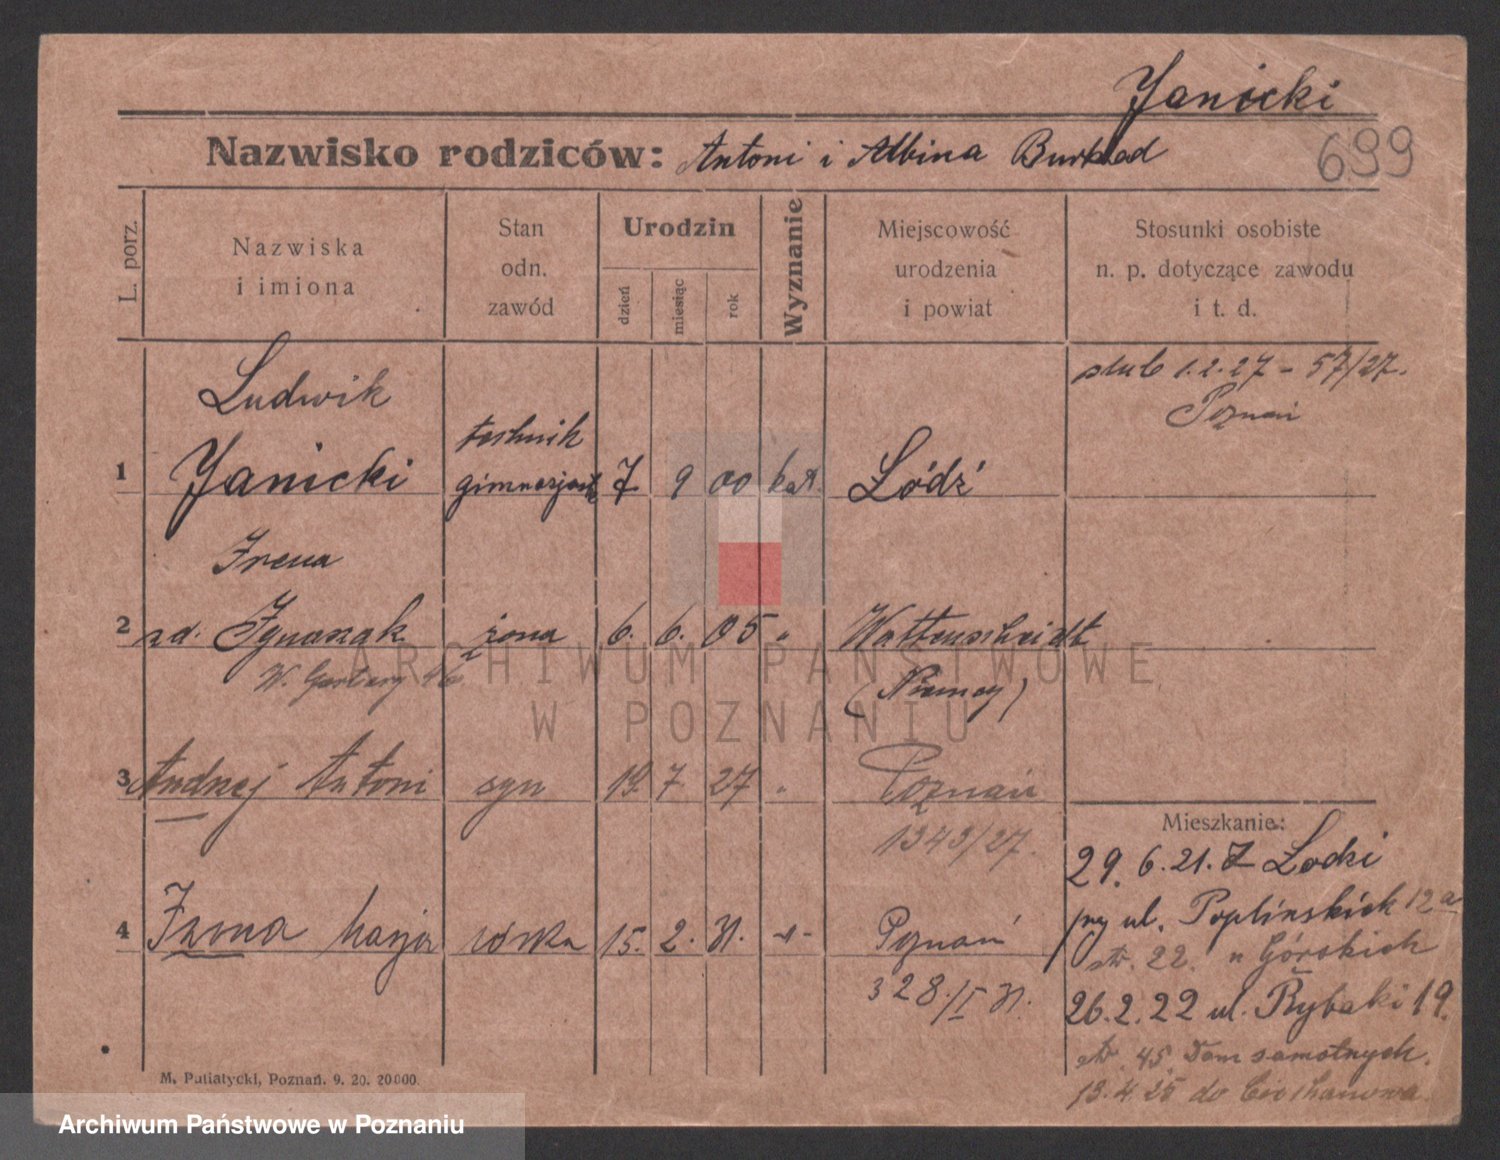 Janicki
Nazwisko rodziców: Antoni i Albina
699
L. porz.
Nazwiska
i imiona
Stan
odn.
zawód
Urodzin
dzień
miesiąc
rok
Wyznanie
Miejscowość
urodzenia
i powiat
Stosunki osobiste
n. p. dotyczące zawodu
i t. d.
ślub 1.2.27 - 57/27.
Poznań
Ludwik
technik
1 Janicki 7 9 00 kat. Łódź
Irena
2 zd. Ignaszak żona 6. 6. 05 " Wattenscheidt
(Niemcy)
3 Andrzej Antoni syn 19 7 27 " Poznań
1343/27.
4 Iwona Marja córka 15. 2. 31. -"- Poznań
328/I 31.
Mieszkanie:
29. 6. 21. Z Łodzi
przy ul. Poplińskich 12a
str. 22. u Górskich
26.2.22 ul. Rybaki 19.
str. 45. Dom samotnych.
13.4.25 do Ciechanowa.
M. Putiatycki, Poznań. 9. 20. 20000.
ARCHIWUM PAŃSTWOWE
W POZNANIU
Archiwum Państwowe w Poznaniu